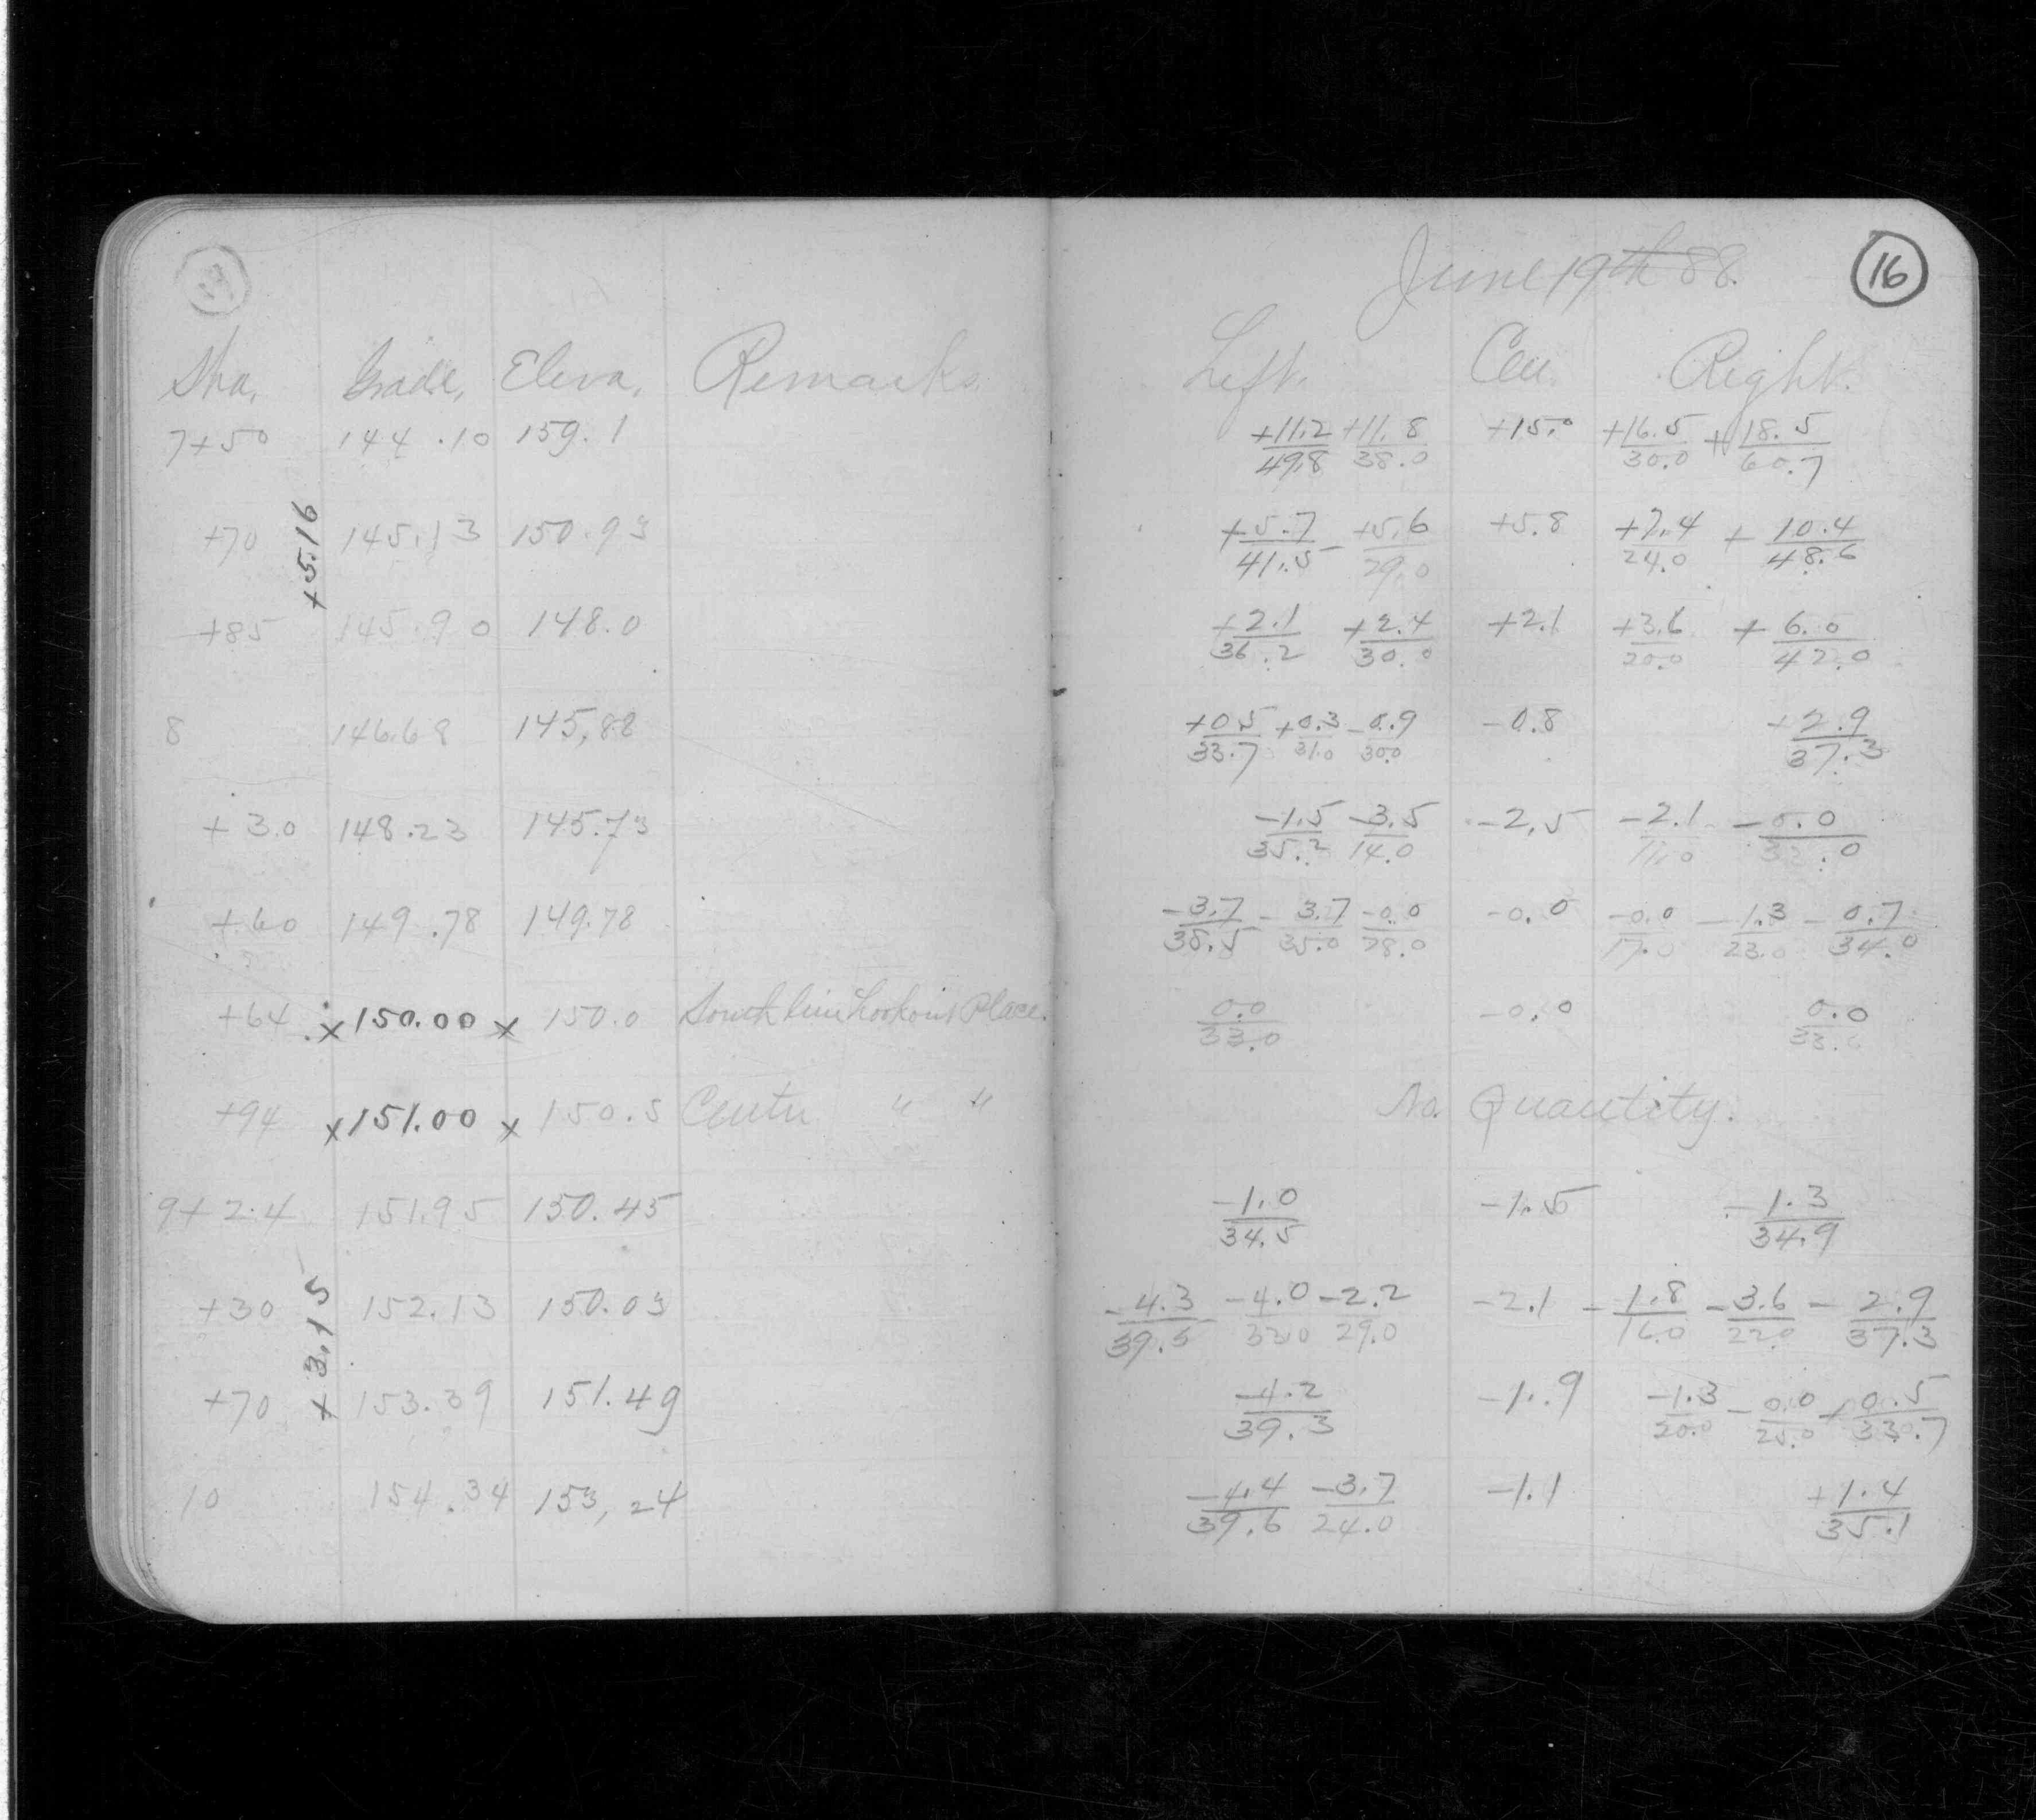 June 19th 88.
16
Sta. Grade. Eleva. Remarks. Left. Cen. Right.
7+50 144.10 159.1 +11.2/49.8 +11.8/38.0 +15.0 +16.5/30.0 +18.5/60.7
+5.16
+70 145.13 150.93 +5.7/41.5 +5.6/29.0 +5.8 +7.4/24.0 +10.4/48.6
+85 145.90 148.0 +2.1/36.2 +2.4/30.0 +2.1 +3.6/20.0 +6.0/42.0
8 146.68 145.88 +0.5/33.7 +0.3/31.0 -0.9/30.0 -0.8 +2.9/37.3
+30 148.23 145.73 -1.5/35.2 -3.5/14.0 -2.5 -2.1/11.0 -0.0
+60 149.78 149.78 -3.7/38.5 -3.7/35.0 -0.0/28.0 -0.0 -0.0/17.0 -1.3/23.0 -0.7/34.0
+64 x 150.00 x 150.0 South line Lookout Place. 0.0/33.0 -0.0 0.0/33.0
+94 x 151.00 x 150.5 Center " " No Quantity.
9+24 151.95 150.45 -1.0/34.5 -1.5 -1.3/34.9
+3.15
+30 152.13 150.03 -4.3/39.5 -4.0/33.0 -2.2/29.0 -2.1 -1.8/16.0 -3.6/22.0 -2.9/37.3
+70 153.39 151.49 -4.2/39.3 -1.9 -1.3/20.0 -0.0/25.0 +0.5/33.7
10 154.34 153.24 -4.4/39.6 -3.7/24.0 -1.1 +1.4/35.1